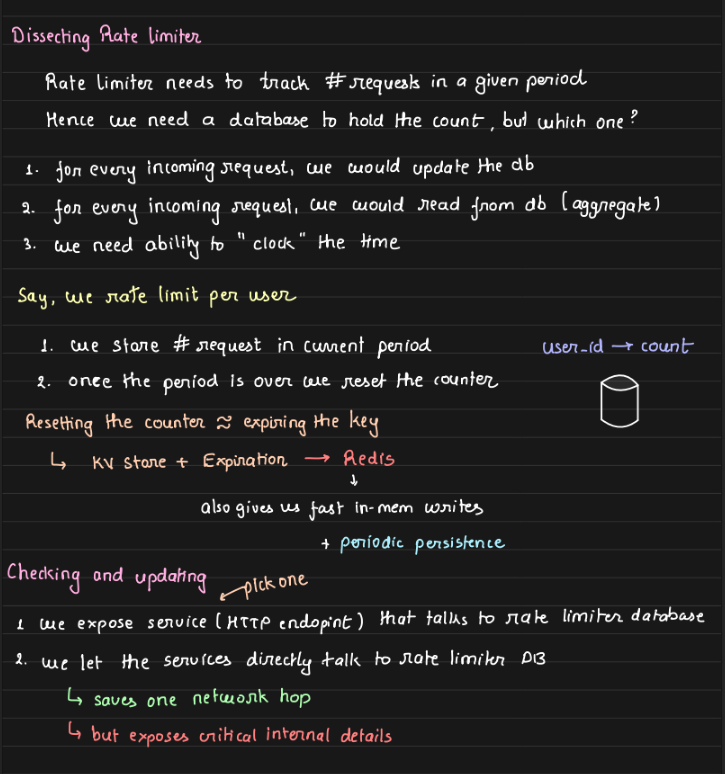 Dissecting Rate limiter
Rate limiter needs to track # requests in a given period
Hence we need a database to hold the count, but which one?
1. for every incoming request, we would update the db
2. for every incoming request, we would read from db (aggregate)
3. we need ability to "clock" the time
Say, we rate limit per user
1. we store # request in current period
user_id → count
2. once the period is over we reset the counter
Resetting the counter ≈ expiring the key
↳ KV store + Expiration → Redis
↓
also gives us fast in-mem writes
+ periodic persistence
Checking and updating
pick one
1 we expose service (HTTP endopint) that talks to rate limiter database
2. we let the services directly talk to rate limiter DB
↳ saves one network hop
↳ but exposes critical internal details